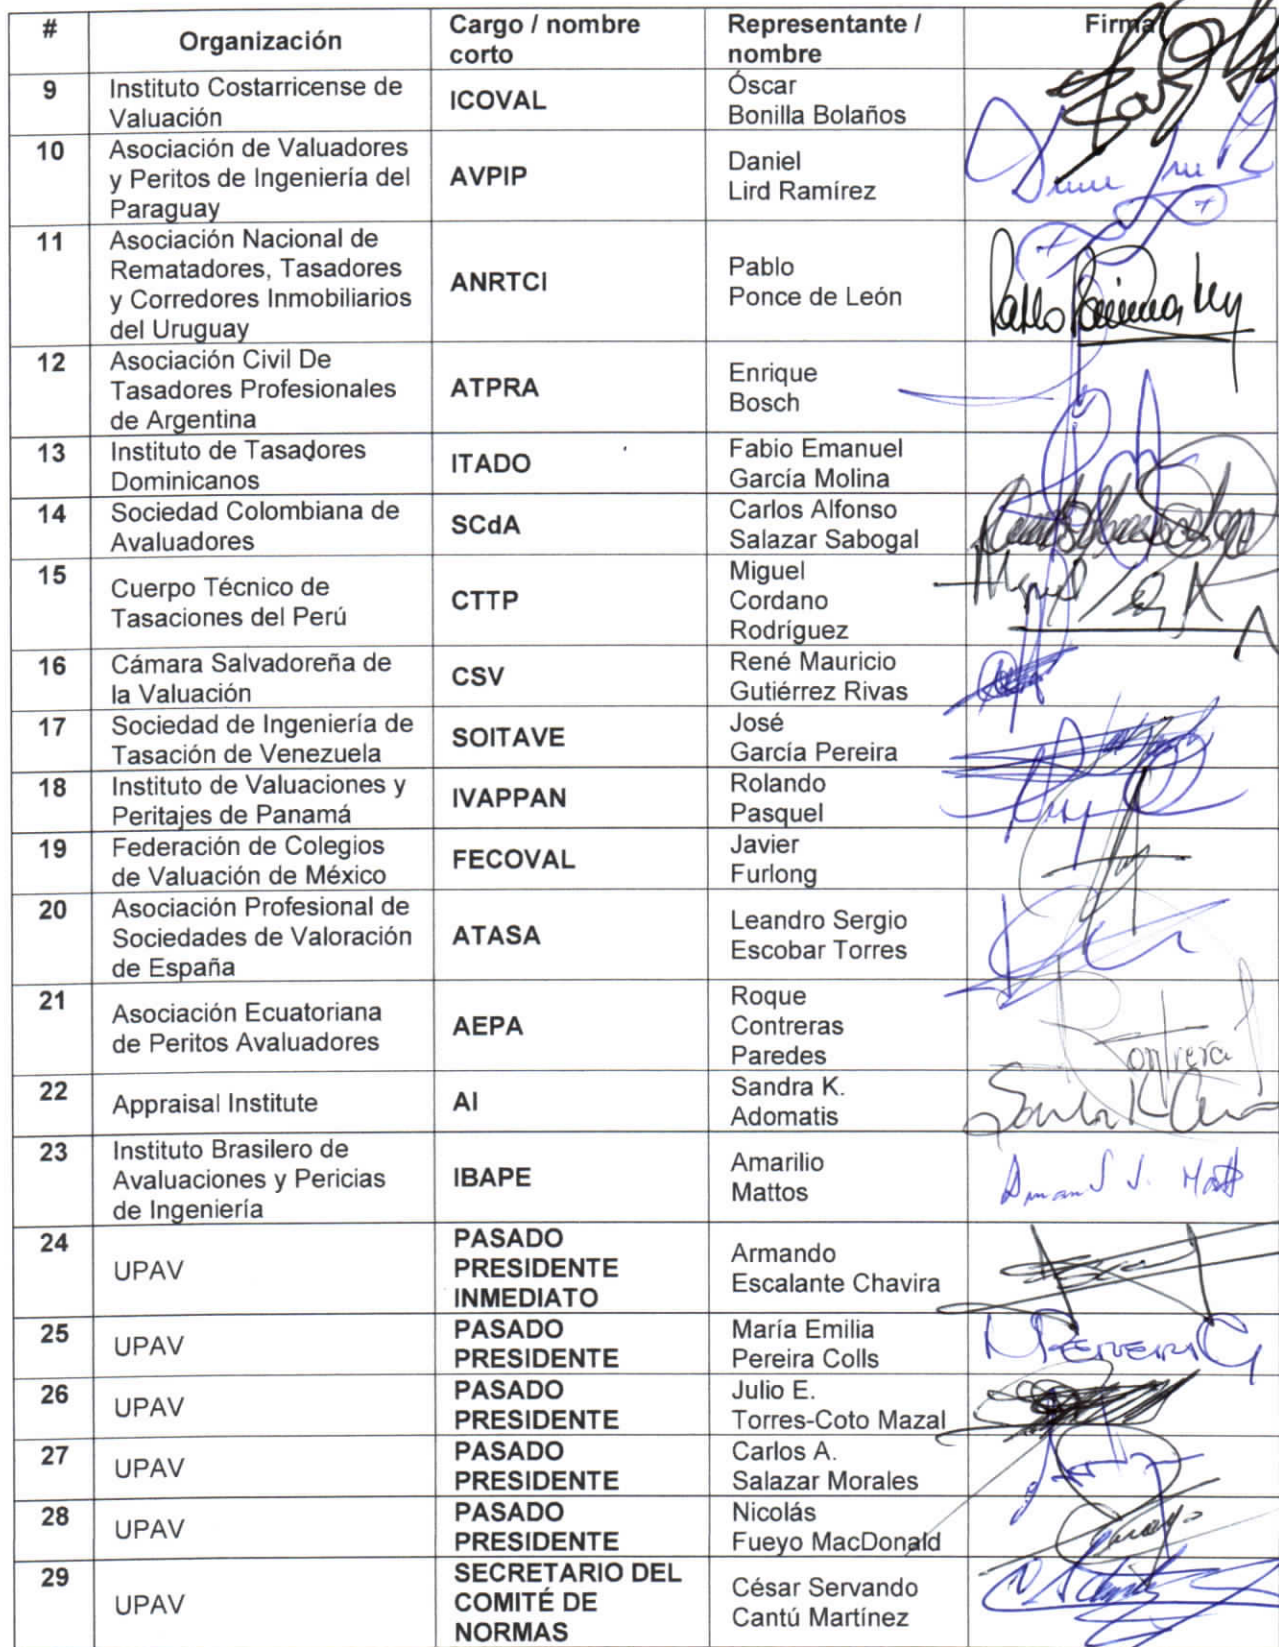 #
Organización
Cargo / nombre
corto
Representante /
nombre
Firma
9
Instituto Costarricense de
Valuación
ICOVAL
Óscar
Bonilla Bolaños
10
Asociación de Valuadores
y Peritos de Ingeniería del
Paraguay
AVPIP
Daniel
Lird Ramírez
11
Asociación Nacional de
Rematadores, Tasadores
y Corredores Inmobiliarios
del Uruguay
ANRTCI
Pablo
Ponce de León
12
Asociación Civil De
Tasadores Profesionales
de Argentina
ATPRA
Enrique
Bosch
13
Instituto de Tasadores
Dominicanos
ITADO
Fabio Emanuel
García Molina
14
Sociedad Colombiana de
Avaluadores
SCdA
Carlos Alfonso
Salazar Sabogal
15
Cuerpo Técnico de
Tasaciones del Perú
CTTP
Miguel
Cordano
Rodríguez
Miguel
16
Cámara Salvadoreña de
la Valuación
CSV
René Mauricio
Gutiérrez Rivas
17
Sociedad de Ingeniería de
Tasación de Venezuela
SOITAVE
José
García Pereira
18
Instituto de Valuaciones y
Peritajes de Panamá
IVAPPAN
Rolando
Pasquel
19
Federación de Colegios
de Valuación de México
FECOVAL
Javier
Furlong
20
Asociación Profesional de
Sociedades de Valoración
de España
ATASA
Leandro Sergio
Escobar Torres
21
Asociación Ecuatoriana
de Peritos Avaluadores
AEPA
Roque
Contreras
Paredes
22
Appraisal Institute
AI
Sandra K.
Adomatis
23
Instituto Brasilero de
Avaluaciones y Pericias
de Ingeniería
IBAPE
Amarilio
Mattos
24
UPAV
PASADO
PRESIDENTE
INMEDIATO
Armando
Escalante Chavira
25
UPAV
PASADO
PRESIDENTE
María Emilia
Pereira Colls
26
UPAV
PASADO
PRESIDENTE
Julio E.
Torres-Coto Mazal
27
UPAV
PASADO
PRESIDENTE
Carlos A.
Salazar Morales
28
UPAV
PASADO
PRESIDENTE
Nicolás
Fueyo MacDonald
29
UPAV
SECRETARIO DEL
COMITÉ DE
NORMAS
César Servando
Cantú Martínez